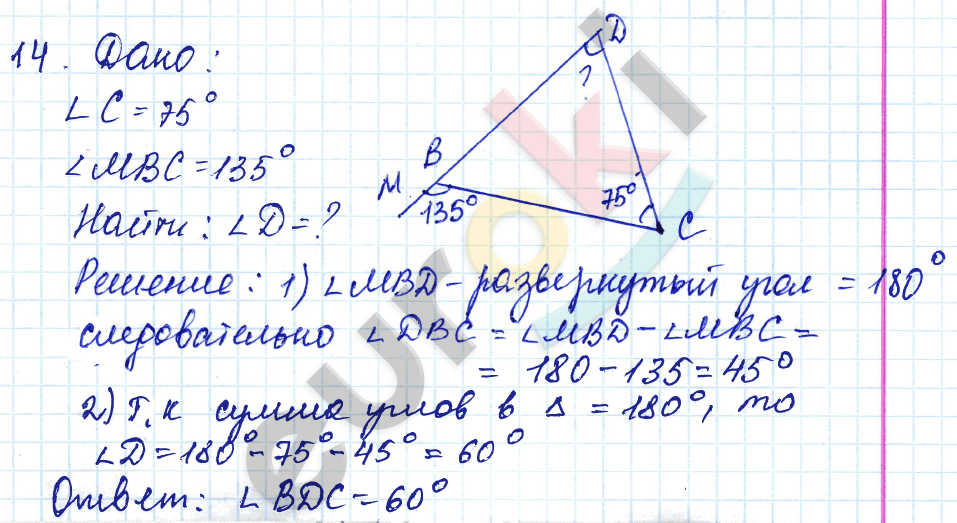 14. Дано:
∠C = 75°
∠MBC = 135°
Найти: ∠D = ?
D
?
B
M
135°
75°
C
Решение: 1) ∠MBD - развернутый угол = 180°
следовательно ∠DBC = ∠MBD - ∠MBC =
= 180 - 135 = 45°
2) т.к сумма углов в Δ = 180°, то
∠D = 180° - 75° - 45° = 60°
Ответ: ∠BDC = 60°
euroki